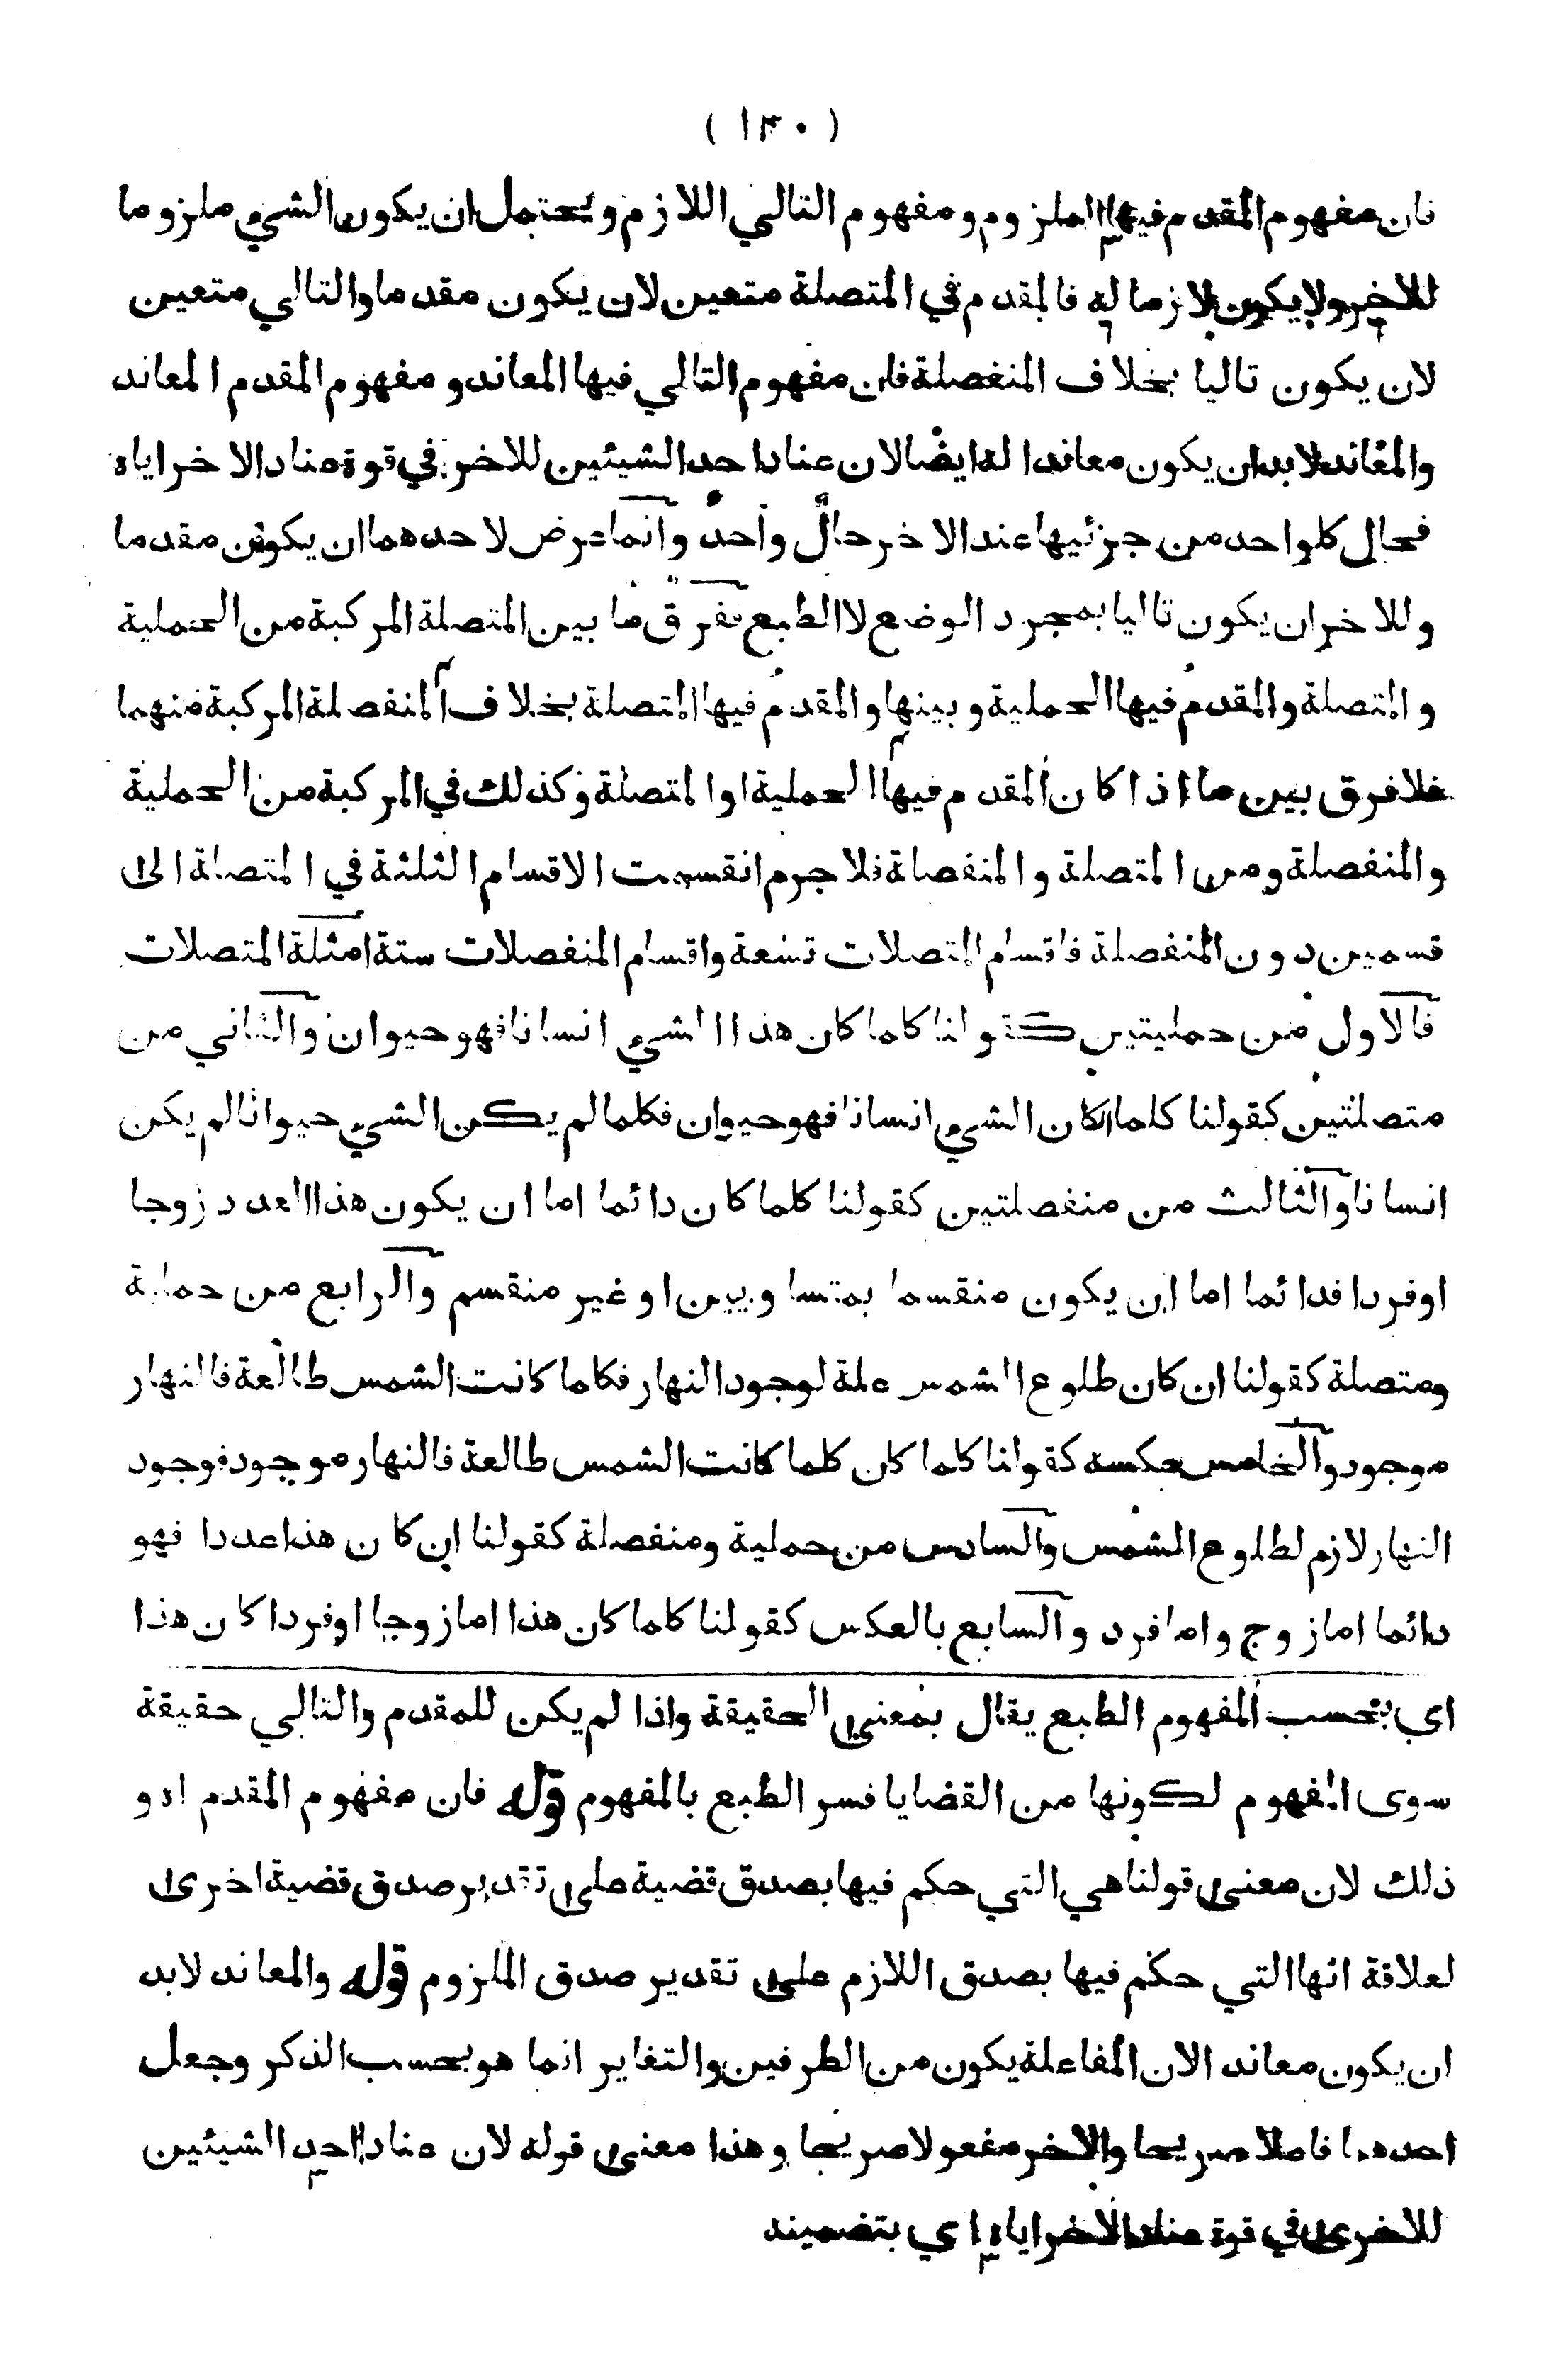 ( ١٣٠ )
فان مفهوم المقدم فيها الملزوم ومفهوم التالي اللازم ويحتمل ان يكون الشيء ملزوما
للاخر ولا يكون لازما له فالمقدم في المتصلة متعين لان يكون مقدما والتالي متعين
لان يكون تاليا بخلاف المنفصلة فان مفهوم التالي فيها المعاند ومفهوم المقدم المعاند
والمعاند لابد ان يكون معاندا له ايضا لان عناد احد الشيئين للاخر في قوة عناد الاخر اياه
فحال كل واحد من جزئيها عند الاخر حال واحد وانما عرض لاحدهما ان يكون مقدما
وللاخر ان يكون تاليا بمجرد الوضع لا الطبع نفرق ما بين المتصلة المركبة من الحملية
والمتصلة والمقدم فيها الحملية وبينها والمقدم فيها المتصلة بخلاف المنفصلة المركبة منهما
فلا فرق بين ما اذا كان المقدم فيها الحملية او المتصلة وكذلك في المركبة من الحملية
والمنفصلة ومن المتصلة والمنفصلة فلا جرم انقسمت الاقسام الثلثة في المتصلة الى
قسمين دون المنفصلة فاقسام المتصلات تسعة واقسام المنفصلات ستة امثلة المتصلات
فالاول من حمليتين كقولنا كلما كان هذا الشيء انسانا فهو حيوان والثاني من
متصلتين كقولنا كلما ان كان الشيء انسانا فهو حيوان فكلما لم يكن الشيء حيوانا لم يكن
انسانا والثالث من منفصلتين كقولنا كلما كان دائما اما ان يكون هذا العدد زوجا
او فردا فدائما اما ان يكون منقسما بمتساويين او غير منقسم والرابع من حملية
ومتصلة كقولنا ان كان طلوع الشمس علة لوجود النهار فكلما كانت الشمس طالعة فالنهار
موجود والخامس عكسه كقولنا كلما كان كلما كانت الشمس طالعة فالنهار موجود فوجود
النهار لازم لطلوع الشمس والسادس من حملية ومنفصلة كقولنا ان كان هذا عددا فهو
دائما اما زوج واما فرد والسابع بالعكس كقولنا كلما كان هذا اما زوجا او فردا كان هذا
اي بحسب المفهوم الطبع يقال بمعنى الحقيقة واذا لم يكن للمقدم والتالي حقيقة
سوى المفهوم لكونها من القضايا فسر الطبع بالمفهوم قوله فان مفهوم المقدم اه و
ذلك لان معنى قولنا هي التي حكم فيها بصدق قضية على تقدير صدق قضية اخرى
لعلاقة انها التي حكم فيها بصدق اللازم على تقدير صدق الملزوم قوله والمعاند لابد
ان يكون معاندا لان المفاعلة يكون من الطرفين والتغاير انما هو بحسب الذكر وجعل
احدهما فاعلا صريحا والاخر مفعولا صريحا وهذا معنى قوله لان عناد احد الشيئين
للاخرى في قوة عناد الاخر اياه اي بتضمينه